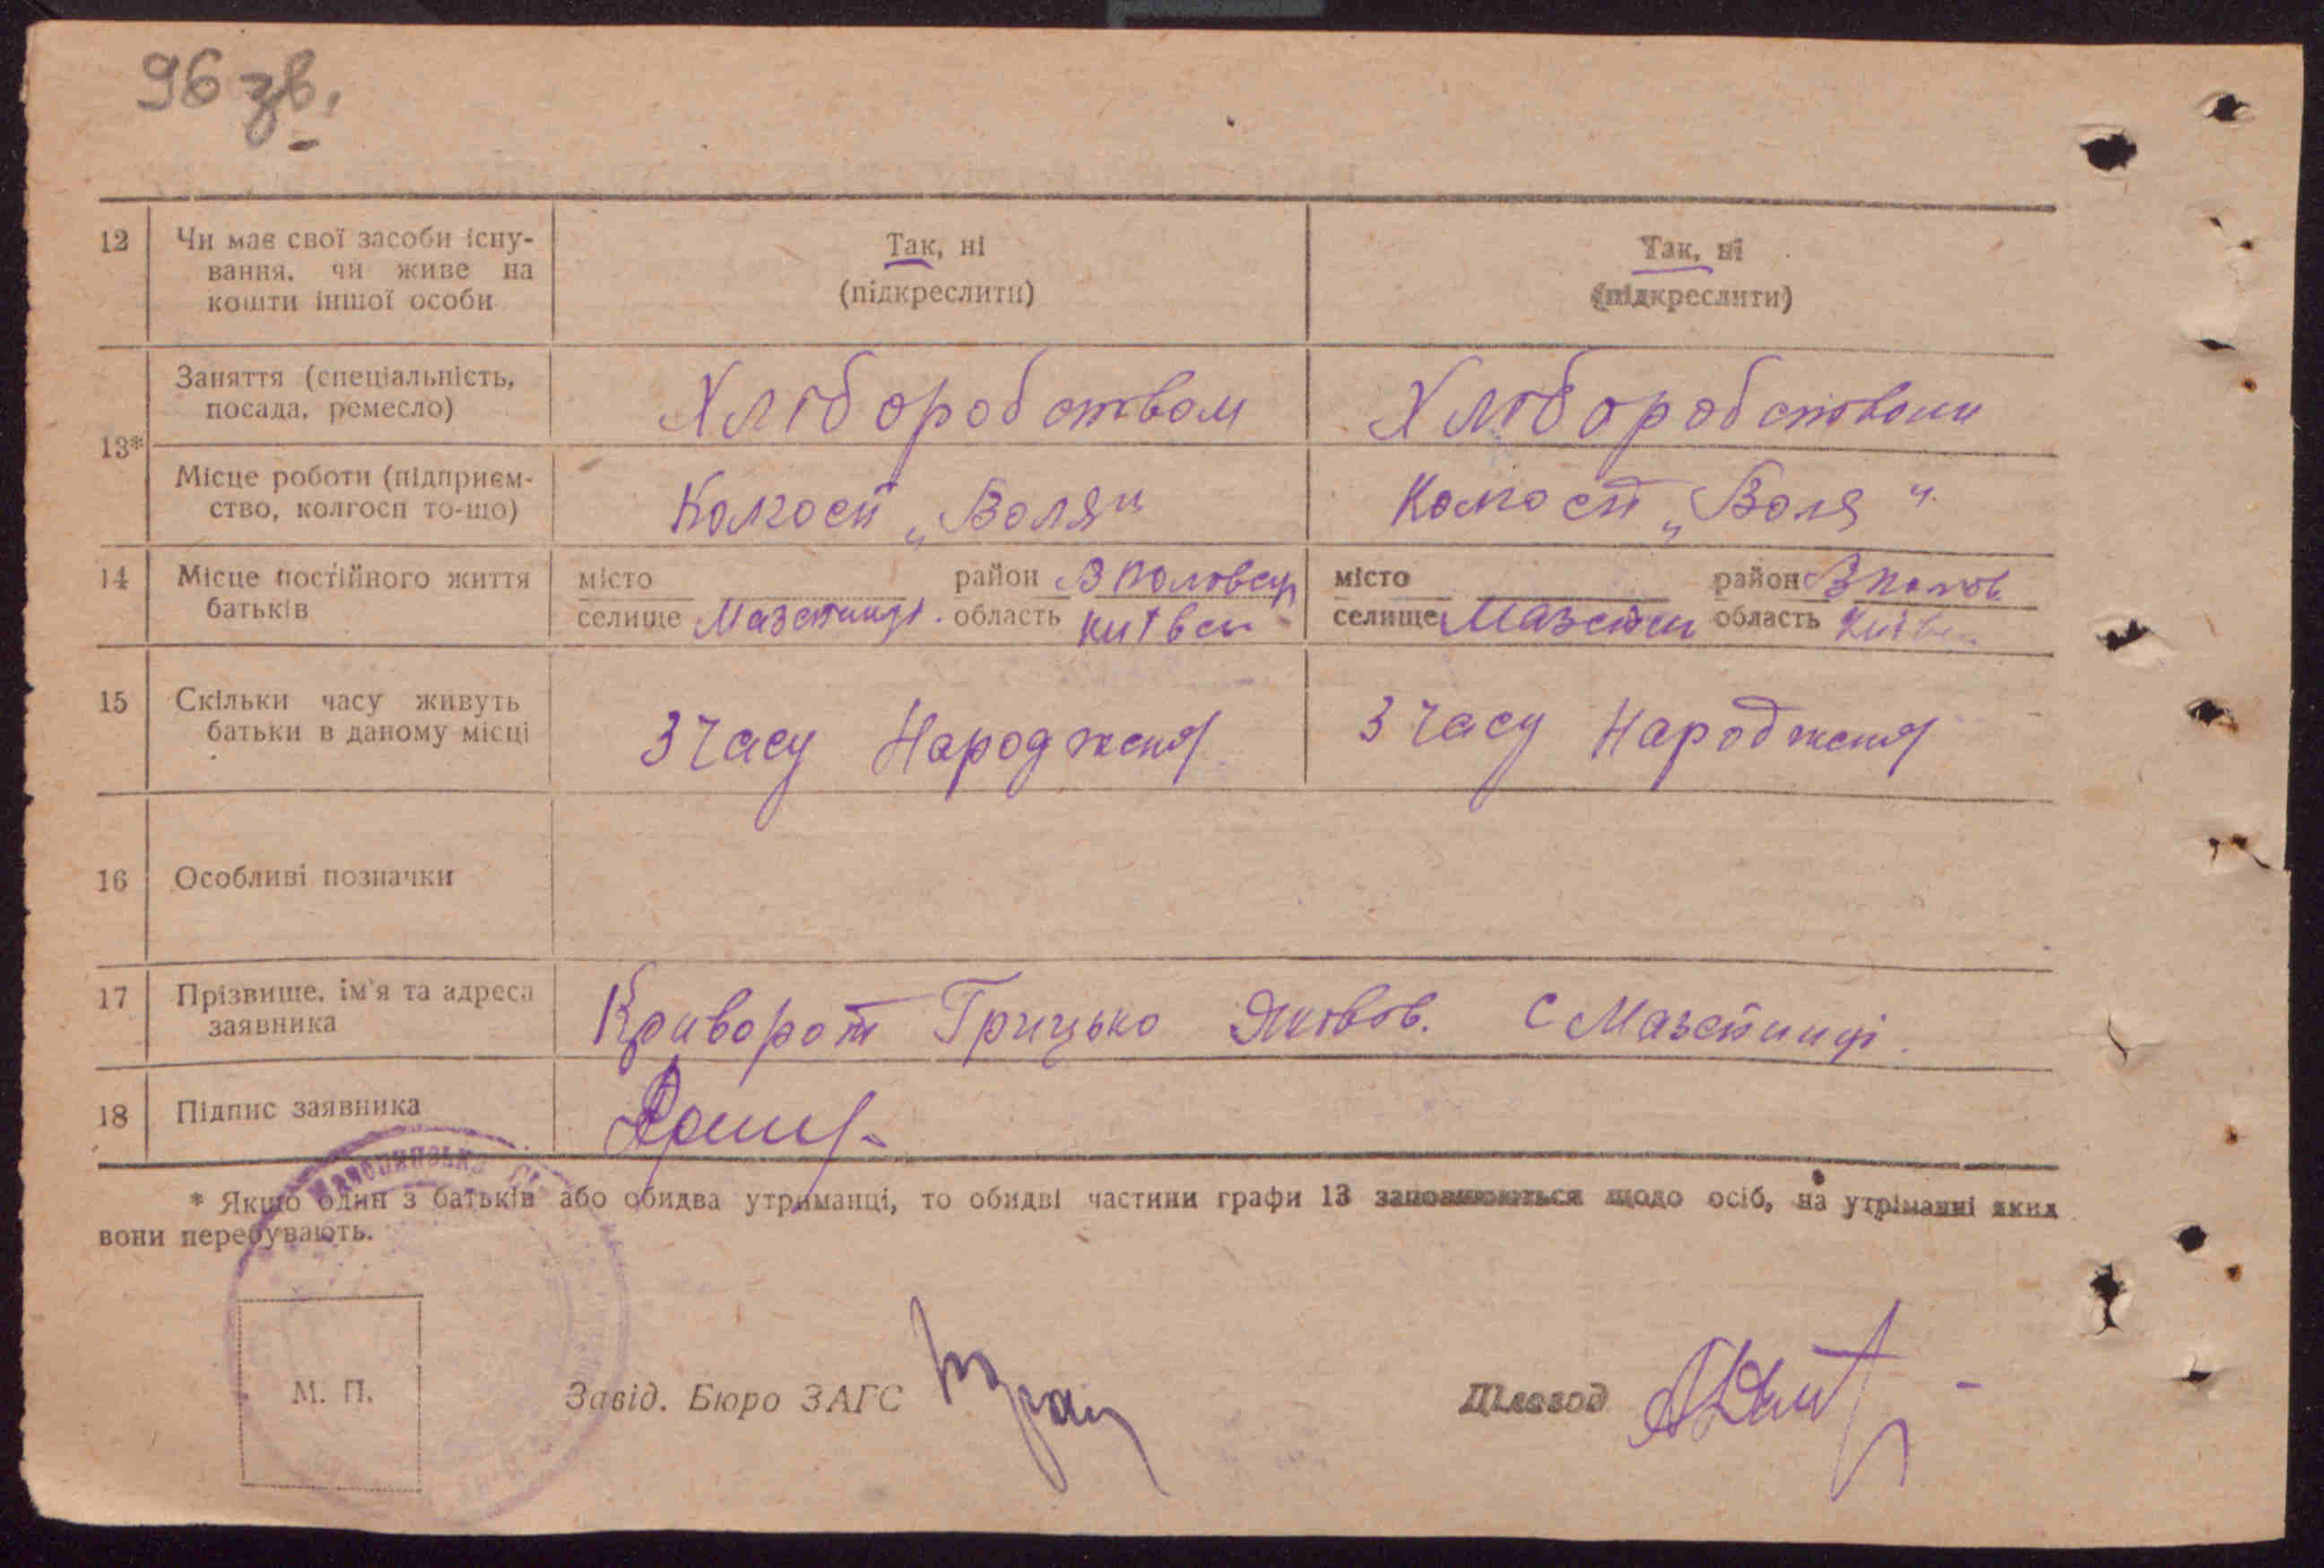 96 зв.
12 Чи має свої засоби існу-
вання, чи живе на
кошти іншої особи
Так, ні
(підкреслити)
Так, ні
(підкреслити)
13*
Заняття (спеціальність,
посада, ремесло)
Хліборобством
Хліборобством
Місце роботи (підприєм-
ство, колгосп то-що)
Колгосп „Воля"
Колгосп „Воля"
14 Місце постійного життя
батьків
місто район
селище область
місто район
селище область
15 Скільки часу живуть
батьки в даному місці
З часу Народженя
З часу Народженя
16 Особливі позначки
17 Прізвище, ім'я та адреса
заявника
Криворот Грицько Яковов. С Мазепинці.
18 Підпис заявника
* Якщо один з батьків або обидва утриманці, то обидві частини графи 13 заповнюються щодо осіб, на утріманні яких
вони перебувають.
М. П.
Завід. Бюро ЗАГС
Діловод